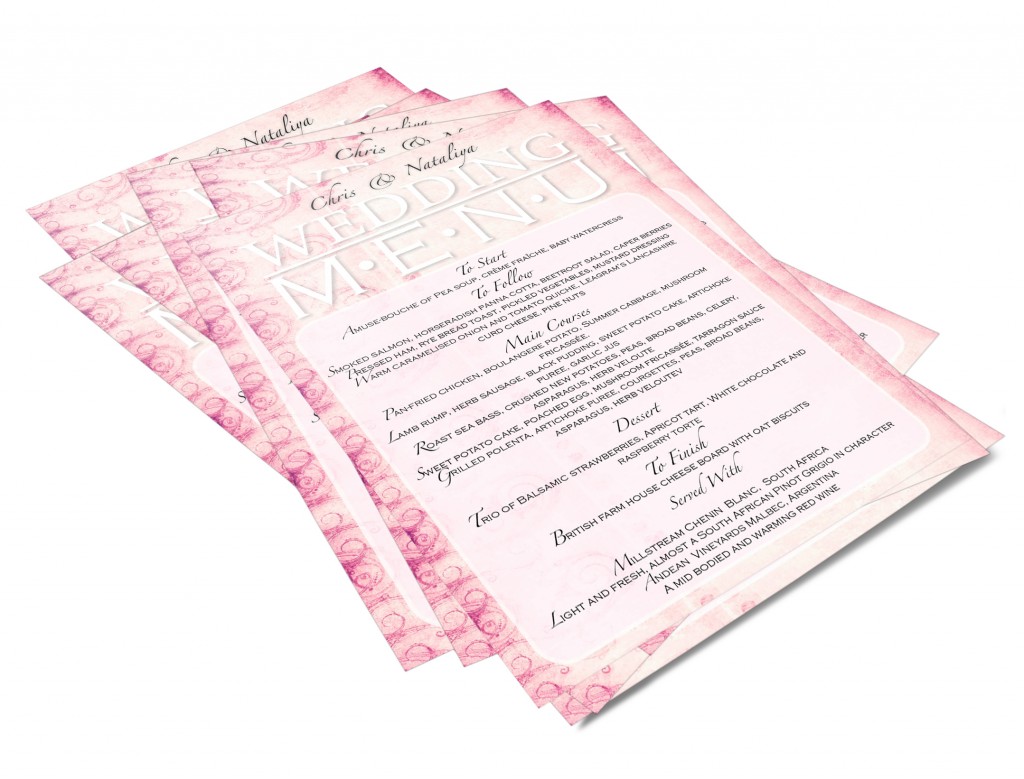 & Nataliya
Nataliya
Chris &
Chris & Nataliya
WEDDING
M·E·N·U
To Start
Amuse-bouche of Pea soup, crème fraîche, baby watercress
To Follow
Smoked salmon, horseradish panna cotta, beetroot salad, caper berries
Pressed ham, rye bread toast, pickled vegetables, mustard dressing
Warm caramelised onion and tomato quiche, Leagram's Lancashire
curd cheese, pine nuts
Main Courses
Pan-fried chicken, boulangere potato, Summer cabbage, mushroom
fricassée
Lamb rump, herb sausage, black pudding, sweet potato cake, artichoke
puree, garlic jus
Roast sea bass, crushed new potatoes, peas, broad beans, celery,
asparagus, herb veloute
Sweet potato cake, poached egg, mushroom fricassée, tarragon sauce
Grilled polenta, artichoke puree, courgettes, peas, broad beans,
asparagus, herb veloutev
Dessert
Trio of Balsamic strawberries, apricot tart, White chocolate and
raspberry torte
To Finish
British farm house cheese board with oat biscuits
Served With
Millstream Chenin Blanc, South Africa
Light and fresh, almost a South African Pinot Grigio in character
Andean Vineyards Malbec, Argentina
A mid bodied and warming red wine